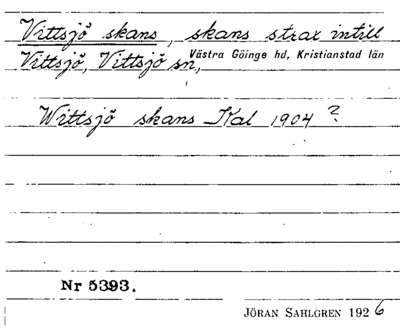 Vittsjö skans, skans strax intill
Vittsjö, Vittsjö sn, Västra Göinge hd, Kristianstad län
Wittsjö skans Kal 1904 ?
Nr 5393.
JÖRAN SAHLGREN 1926